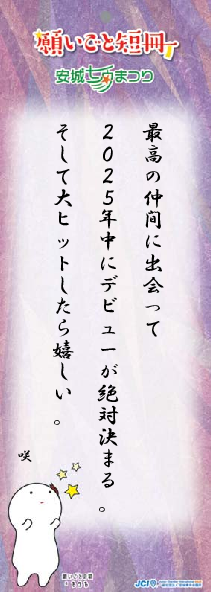 願いごと短冊
安城七夕まつり
最高の仲間に出会って
2025年中にデビューが絶対決まる。
そして大ヒットしたら嬉しい。
咲
願いごと短冊
JCI